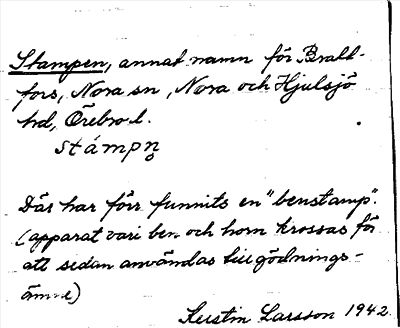 Stampen, annat namn för Bratt-
fors, Nora sn, Nora och Hjulsjö
hd, Örebro l.
stámpn̥
Där har förr funnits en "benstamp".
(apparat vari ben och horn krossas för
att sedan användas till gödnings-
ämne)
Kerstin Larsson 1942